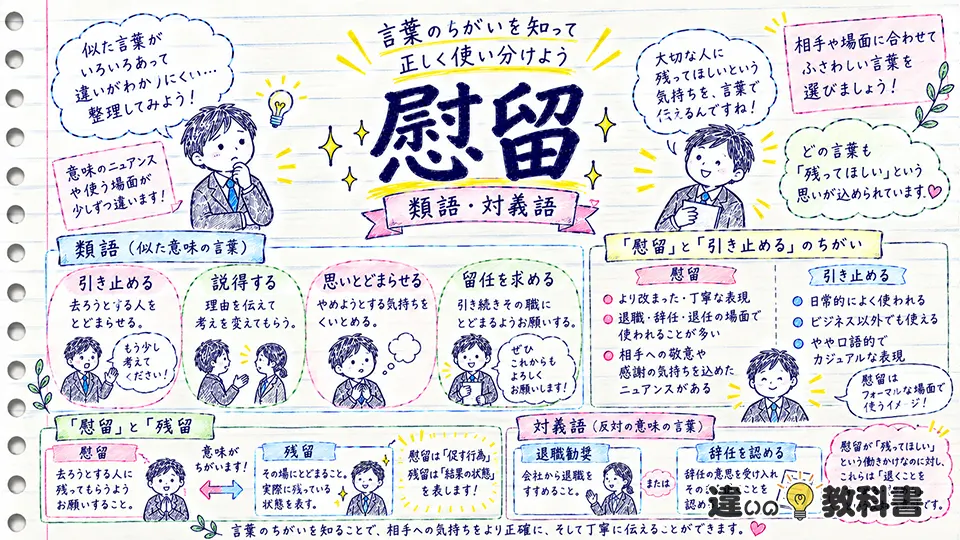 言葉のちがいを知って
正しく使い分けよう
慰留
類語・対義語
似た言葉が
いろいろあって
違いがわかりにくい…
整理してみよう！
意味のニュアンス
や使う場面が
少しずつ違います！
大切な人に
残ってほしいという
気持ちを、言葉で
伝えるんですね！
相手や場面に合わせて
ふさわしい言葉を
選びましょう！
どの言葉も
「残ってほしい」という
思いが込められています。
類語（似た意味の言葉）
引き止める
去ろうとする人を
とどまらせる。
もう少し
考えて
ください！
説得する
理由を伝えて
考えを変えてもらう。
思いとどまらせる
やめようとする気持ちを
くいとめる。
留任を求める
引き続きその職に
とどまるようお願いする。
ぜひ
これからも
よろしく
お願いします！
「慰留」と「引き止める」のちがい
慰留
より改まった・丁寧な表現
退職・辞任・退任の場面で
使われることが多い
相手への敬意や
感謝の気持ちを込めた
ニュアンスがある
引き止める
日常的によく使われる
ビジネス以外でも使える
やや口語的で
カジュアルな表現
慰留は
フォーマルな場面で
使うイメージ！
「慰留」と「残留
慰留
去ろうとする人に
残ってもらうよう
お願いすること。
意味が
ちがいます！
残留
その場にとどまること。
実際に残っている
状態を表す。
慰留は「促す行為」
残留は「結果の状態」
を表します！
対義語（反対の意味の言葉）
退職勧奨
会社から退職を
すすめること。
または
辞任を認める
辞任の意思を受け入れ
その
ことを
認め
慰留が「残ってほしい」
という働きかけなのに対し、
これらは「退くことを
です。
違いの教科書
言葉のちがいを知ることで、相手への気持ちをより正確に、そして丁寧に伝えることができます。